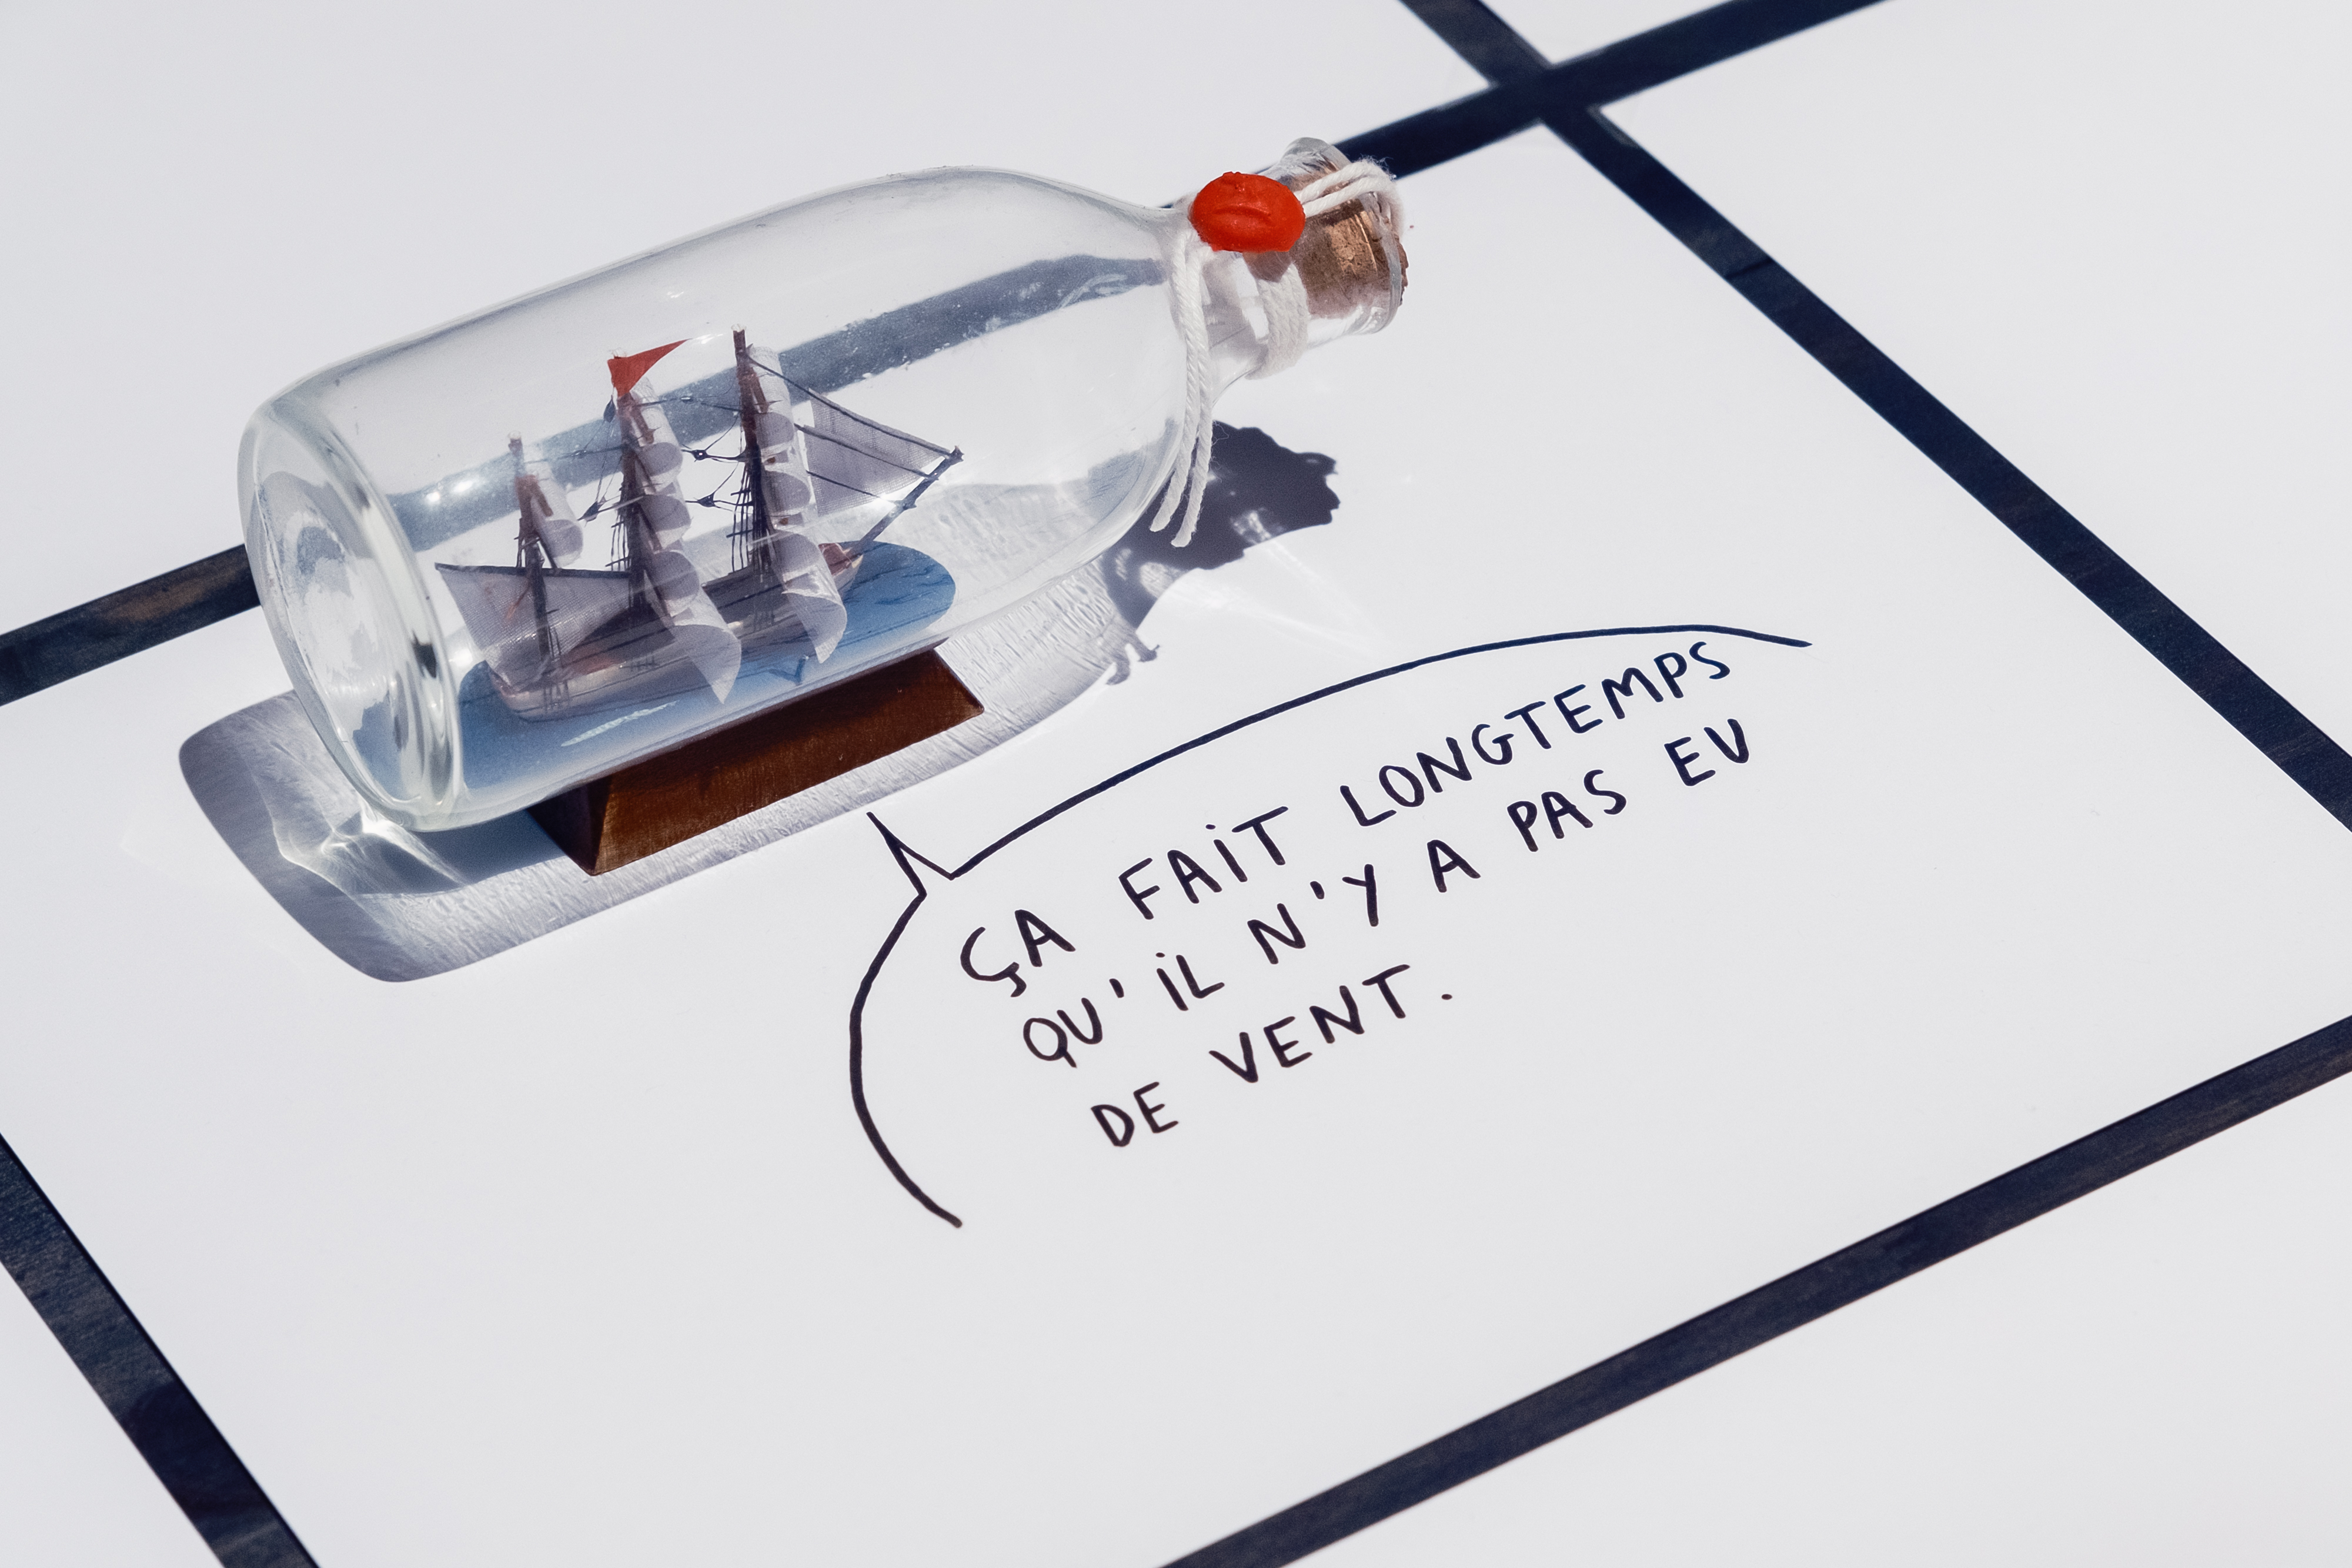 ÇA FAIT LONGTEMPS
QU'IL N'Y A PAS EU
DE VENT.